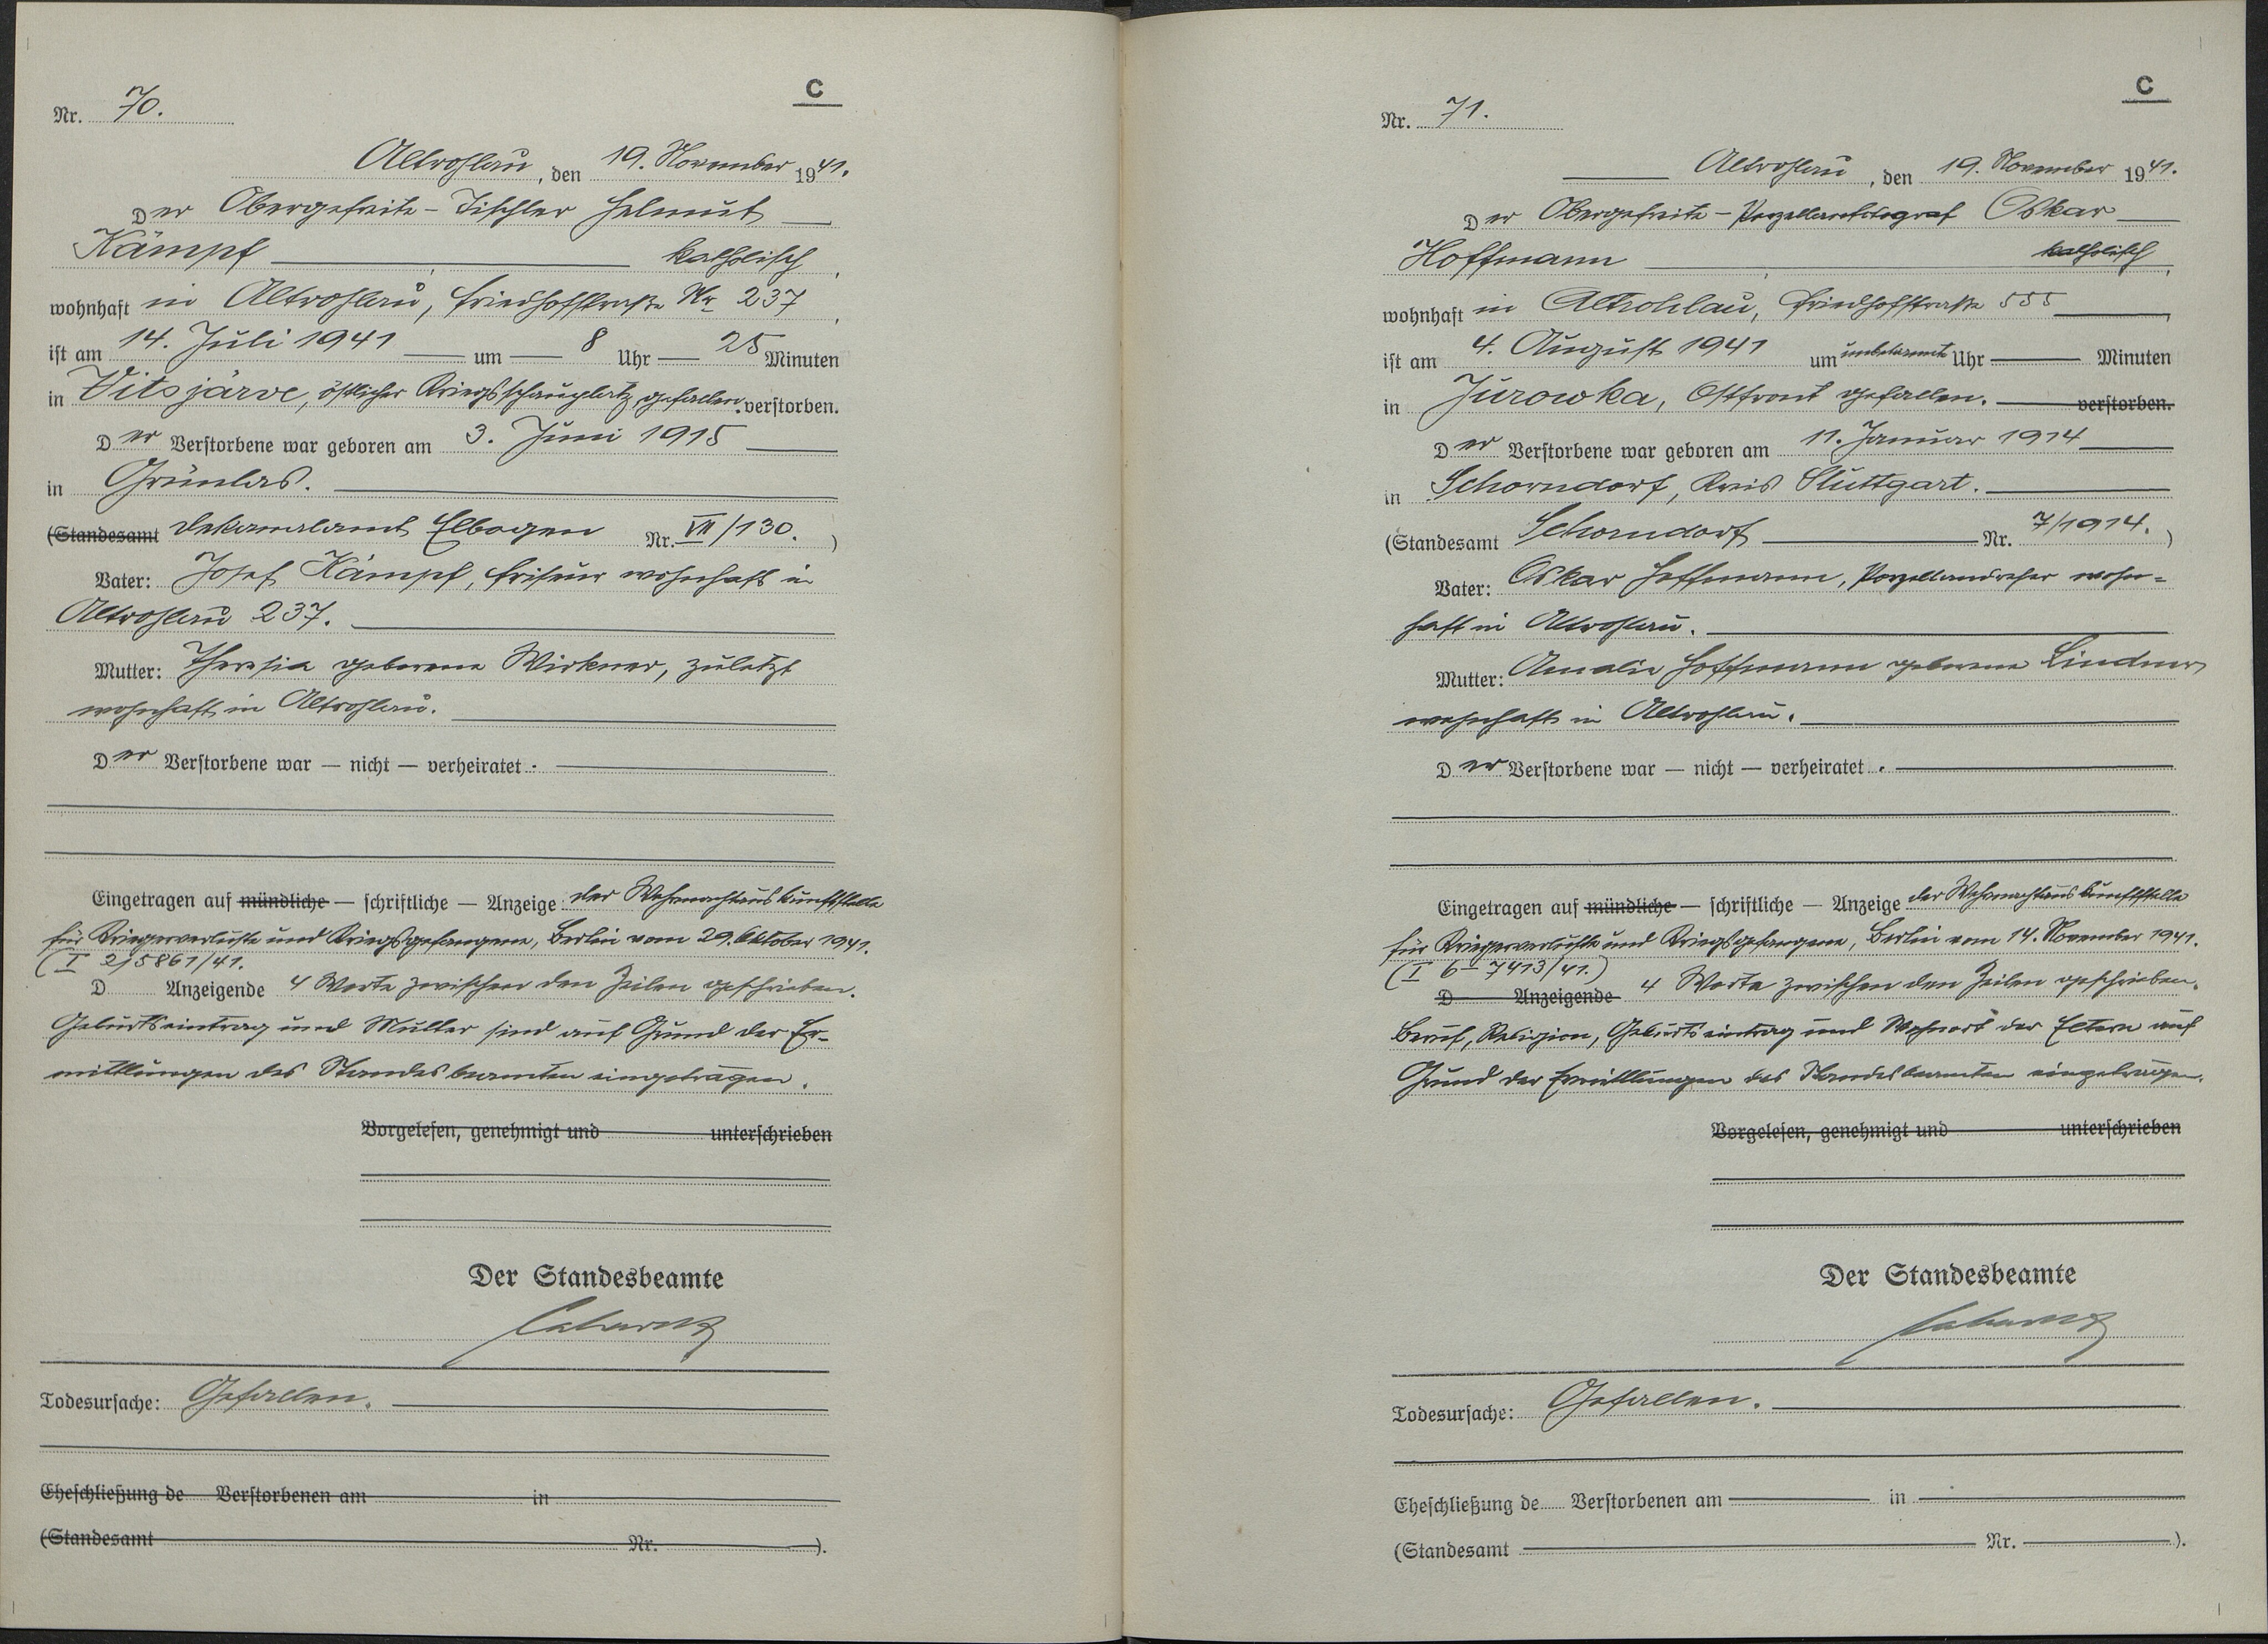 C
Nr. 70.
Altrohlau, den 19. November 1941.
Der Obergefreite - Tischler Helmut
Kämpf katholisch,
wohnhaft in Altrohlau, Friedhofstraße Nr 237,
ist am 14. Juli 1941 um 8 Uhr 25 Minuten
in Vitsjärve, östlicher Kriegsschauplatz, gefallen. verstorben.
Der Verstorbene war geboren am 3. Juni 1915
in Grünlas.
(Standesamt Dekanalamt Elbogen Nr. VII/130.)
Vater: Josef Kämpf, Friseur wohnhaft in
Altrohlau 237.
Mutter: Theresia geborene Wirkner, zuletzt
wohnhaft in Altrohlau.
Der Verstorbene war — nicht — verheiratet.
Eingetragen auf mündliche — schriftliche — Anzeige der Wehrmachtauskunftstelle
für Kriegerverluste und Kriegsgefangene, Berlin vom 29. Oktober 1941.
(I 2/5861/41.
D Anzeigende 4 Worte zwischen den Zeilen geschrieben.
Geburtseintrag und Mutter sind auf Grund der Er-
mittlungen des Standesbeamten eingetragen.
Vorgelesen, genehmigt und unterschrieben
Der Standesbeamte
Todesursache: Gefallen.
Eheschließung de Verstorbenen am in
(Standesamt Nr. ).
C
Nr. 71.
Altrohlau, den 19. November 1941.
Der Obergefreite - Porzellanfotograf Oskar
Hoffmann katholisch,
wohnhaft in Altrohlau, Friedhofstraße 555,
ist am 4. August 1941 um unbekannte Uhr Minuten
in Jurowka, Ostfront gefallen. verstorben.
Der Verstorbene war geboren am 11. Januar 1914
in Schorndorf, Kreis Stuttgart.
(Standesamt Schorndorf Nr. 7/1914.)
Vater: Oskar Hoffmann, Porzellandreher wohn=
haft in Altrohlau.
Mutter: Amalie Hoffmann geborene Lindner,
wohnhaft in Altrohlau.
Der Verstorbene war — nicht — verheiratet.
Eingetragen auf mündliche — schriftliche — Anzeige der Wehrmachtauskunftstelle
für Kriegerverluste und Kriegsgefangene, Berlin vom 14. November 1941.
(I 6- 7413/41.)
D Anzeigende 4 Worte zwischen den Zeilen geschrieben.
Beruf, Religion, Geburtseintrag und Wohnort der Eltern auf
Grund der Ermittlungen des Standesbeamten eingetragen.
Vorgelesen, genehmigt und unterschrieben
Der Standesbeamte
Todesursache: Gefallen.
Eheschließung de Verstorbenen am in
(Standesamt Nr. ).